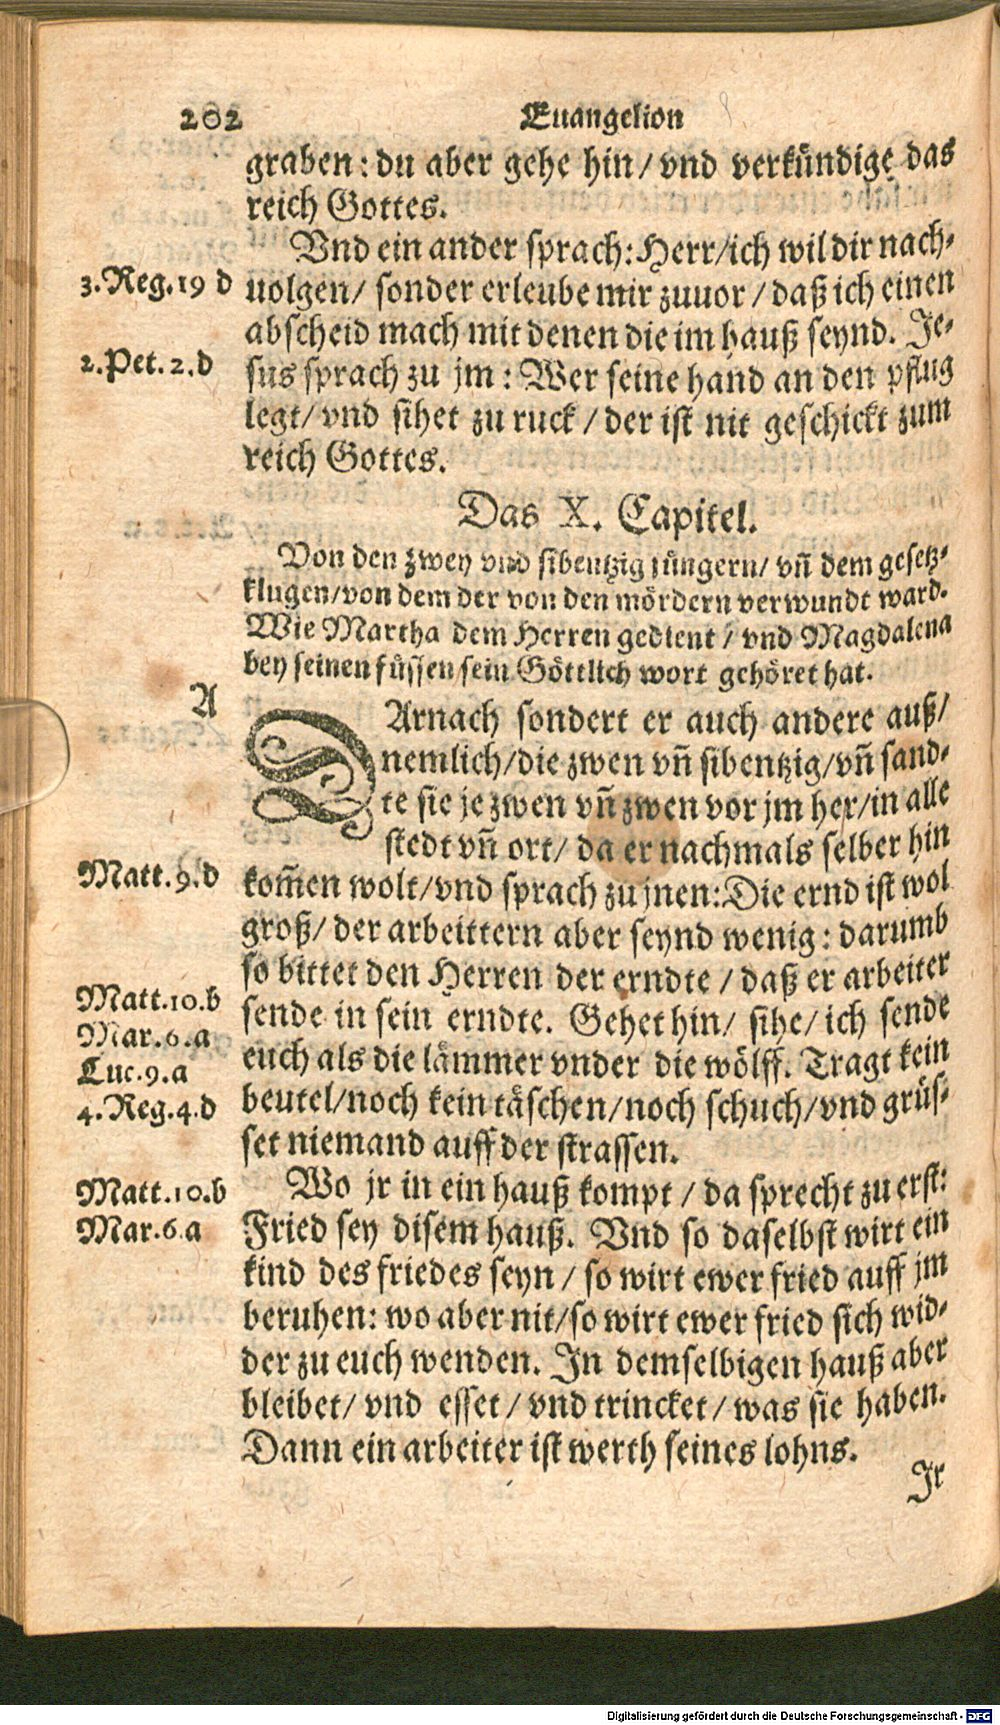 202
Euangelion
graben: du aber gehe hin/ vnd verkündige das
reich Gottes.
Vnd ein ander sprach: Herr/ich wil dir nach-
3.Reg.19 d
uolgen/ sonder erleube mir zuuor / daß ich einen
abscheid mach mit denen die im hauß seynd. Je-
2.Pet.2.d
sus sprach zu jm: Wer seine hand an den pflug
legt/ vnd sihet zu ruck / der ist nit geschickt zum
reich Gottes.
Das X. Capitel.
Von den zwey vnd sibentzig jüngern/ vñ dem gesetz-
klugen/von dem der von den mördern verwundt ward.
Wie Martha dem Herren gedient / vnd Magdalena
bey seinen füssen sein Göttlich wort gehöret hat.
A
DArnach sondert er auch andere auß/
nemlich/die zwen vñ sibentzig/vñ sand-
te sie je zwen vñ zwen vor jm her/in alle
stedt vñ ort/ da er nachmals selber hin
Matt.9.d
kom̃en wolt/vnd sprach zu jnen: Die ernd ist wol
groß/ der arbeittern aber seynd wenig: darumb
so bittet den Herren der erndte / daß er arbeiter
Matt.10.b
sende in sein erndte. Gehet hin/ sihe/ ich sende
Mar.6.a
euch als die lämmer vnder die wölff. Tragt kein
Luc.9.a
4.Reg.4.d
beutel/noch kein täschen/noch schuch/vnd grüs-
set niemand auff der strassen.
Matt.10.b
Wo jr in ein hauß kompt / da sprecht zu erst:
Mar.6.a
Fried sey disem hauß. Vnd so daselbst wirt ein
kind des friedes seyn / so wirt ewer fried auff jm
beruhen: wo aber nit/so wirt ewer fried sich wid-
der zu euch wenden. In demselbigen hauß aber
bleibet/ vnd esset / vnd trincket / was sie haben.
Dann ein arbeiter ist werth seines lohns.
Jr
Digitalisierung gefördert durch die Deutsche Forschungsgemeinschaft - DFG